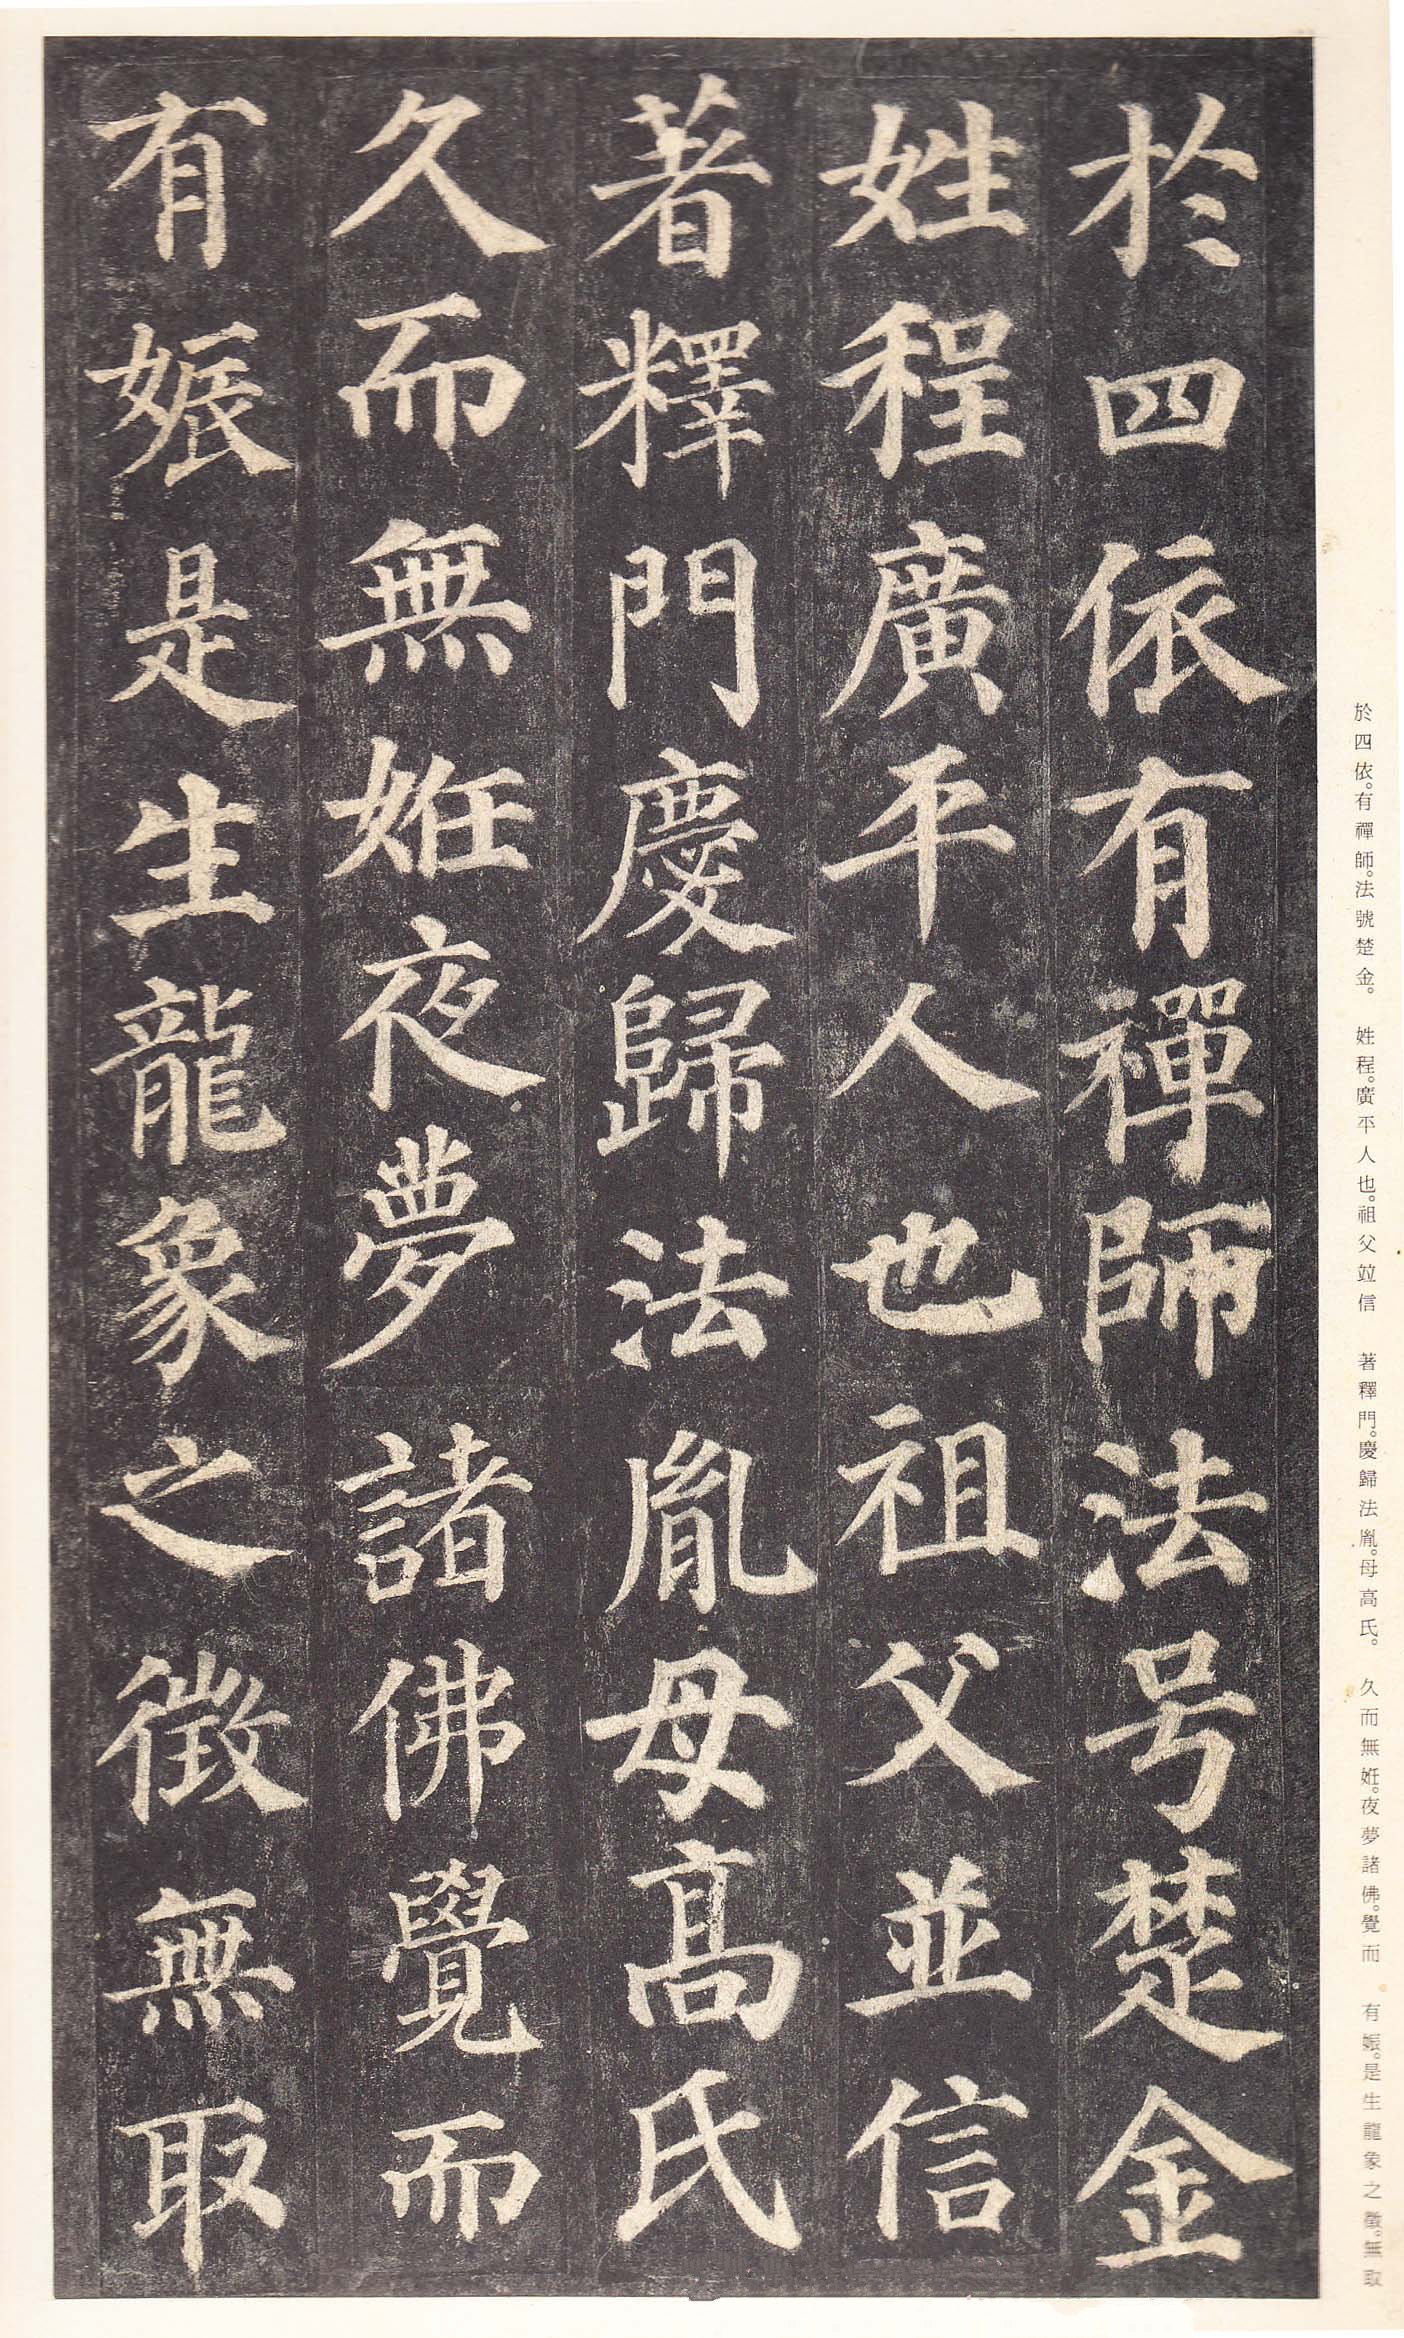 於四依有禪師法号楚金
姓程廣平人也祖父並信
著釋門慶歸法胤母高氏
久而無姙夜夢諸佛覺而
有娠是生龍象之徵無取
於四依。有禪師。法號楚金。　姓程。廣平人也。祖父竝信　著釋門。慶歸法胤。母高氏。　久而無姙。夜夢諸佛。覺而　有娠。是生龍象之徵。無取